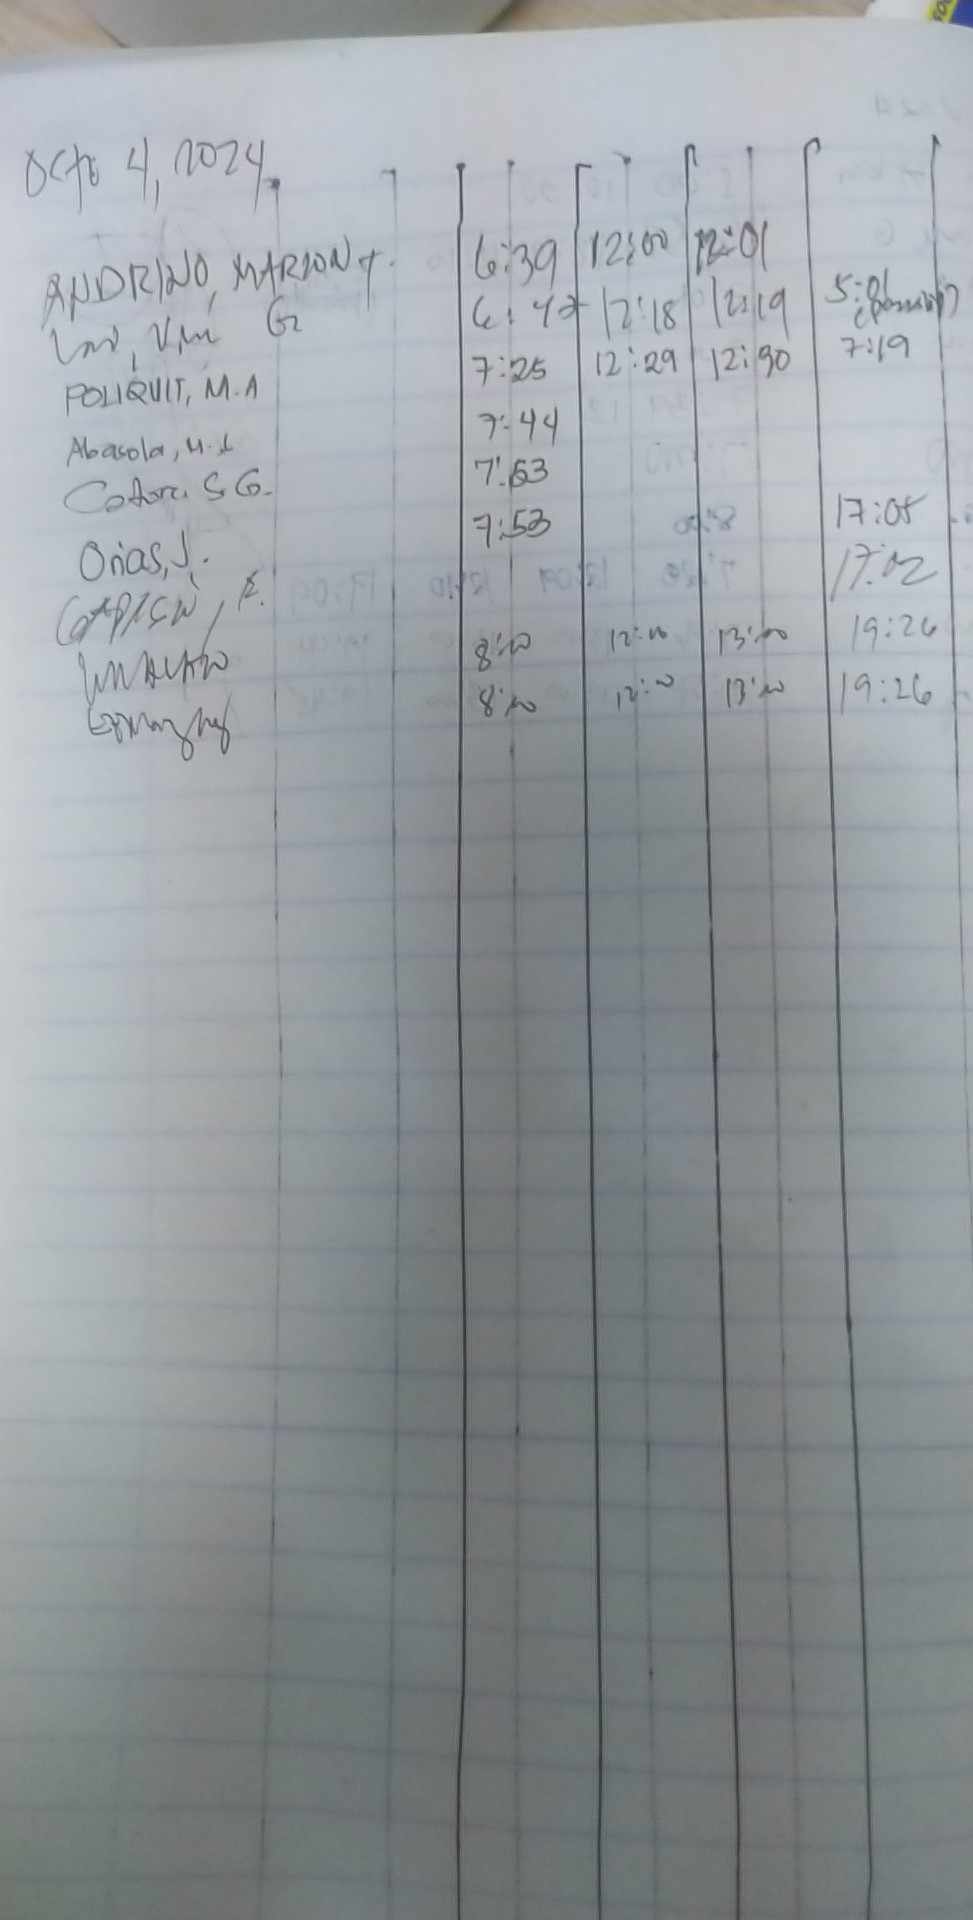 Oct. 4, 2024
ANDRINO, MARION T. 6:39 12:00 12:01
G. 6:42 12:18 12:19 5:01
POLIQUIT, M.A 7:25 12:29 12:30 7:19
Abasola, M. L 7:44
S.G. 7:53
Orias, J. 7:53 17:05
17:02
8:00 12:00 13:00 19:26
8:00 12:00 13:00 19:26